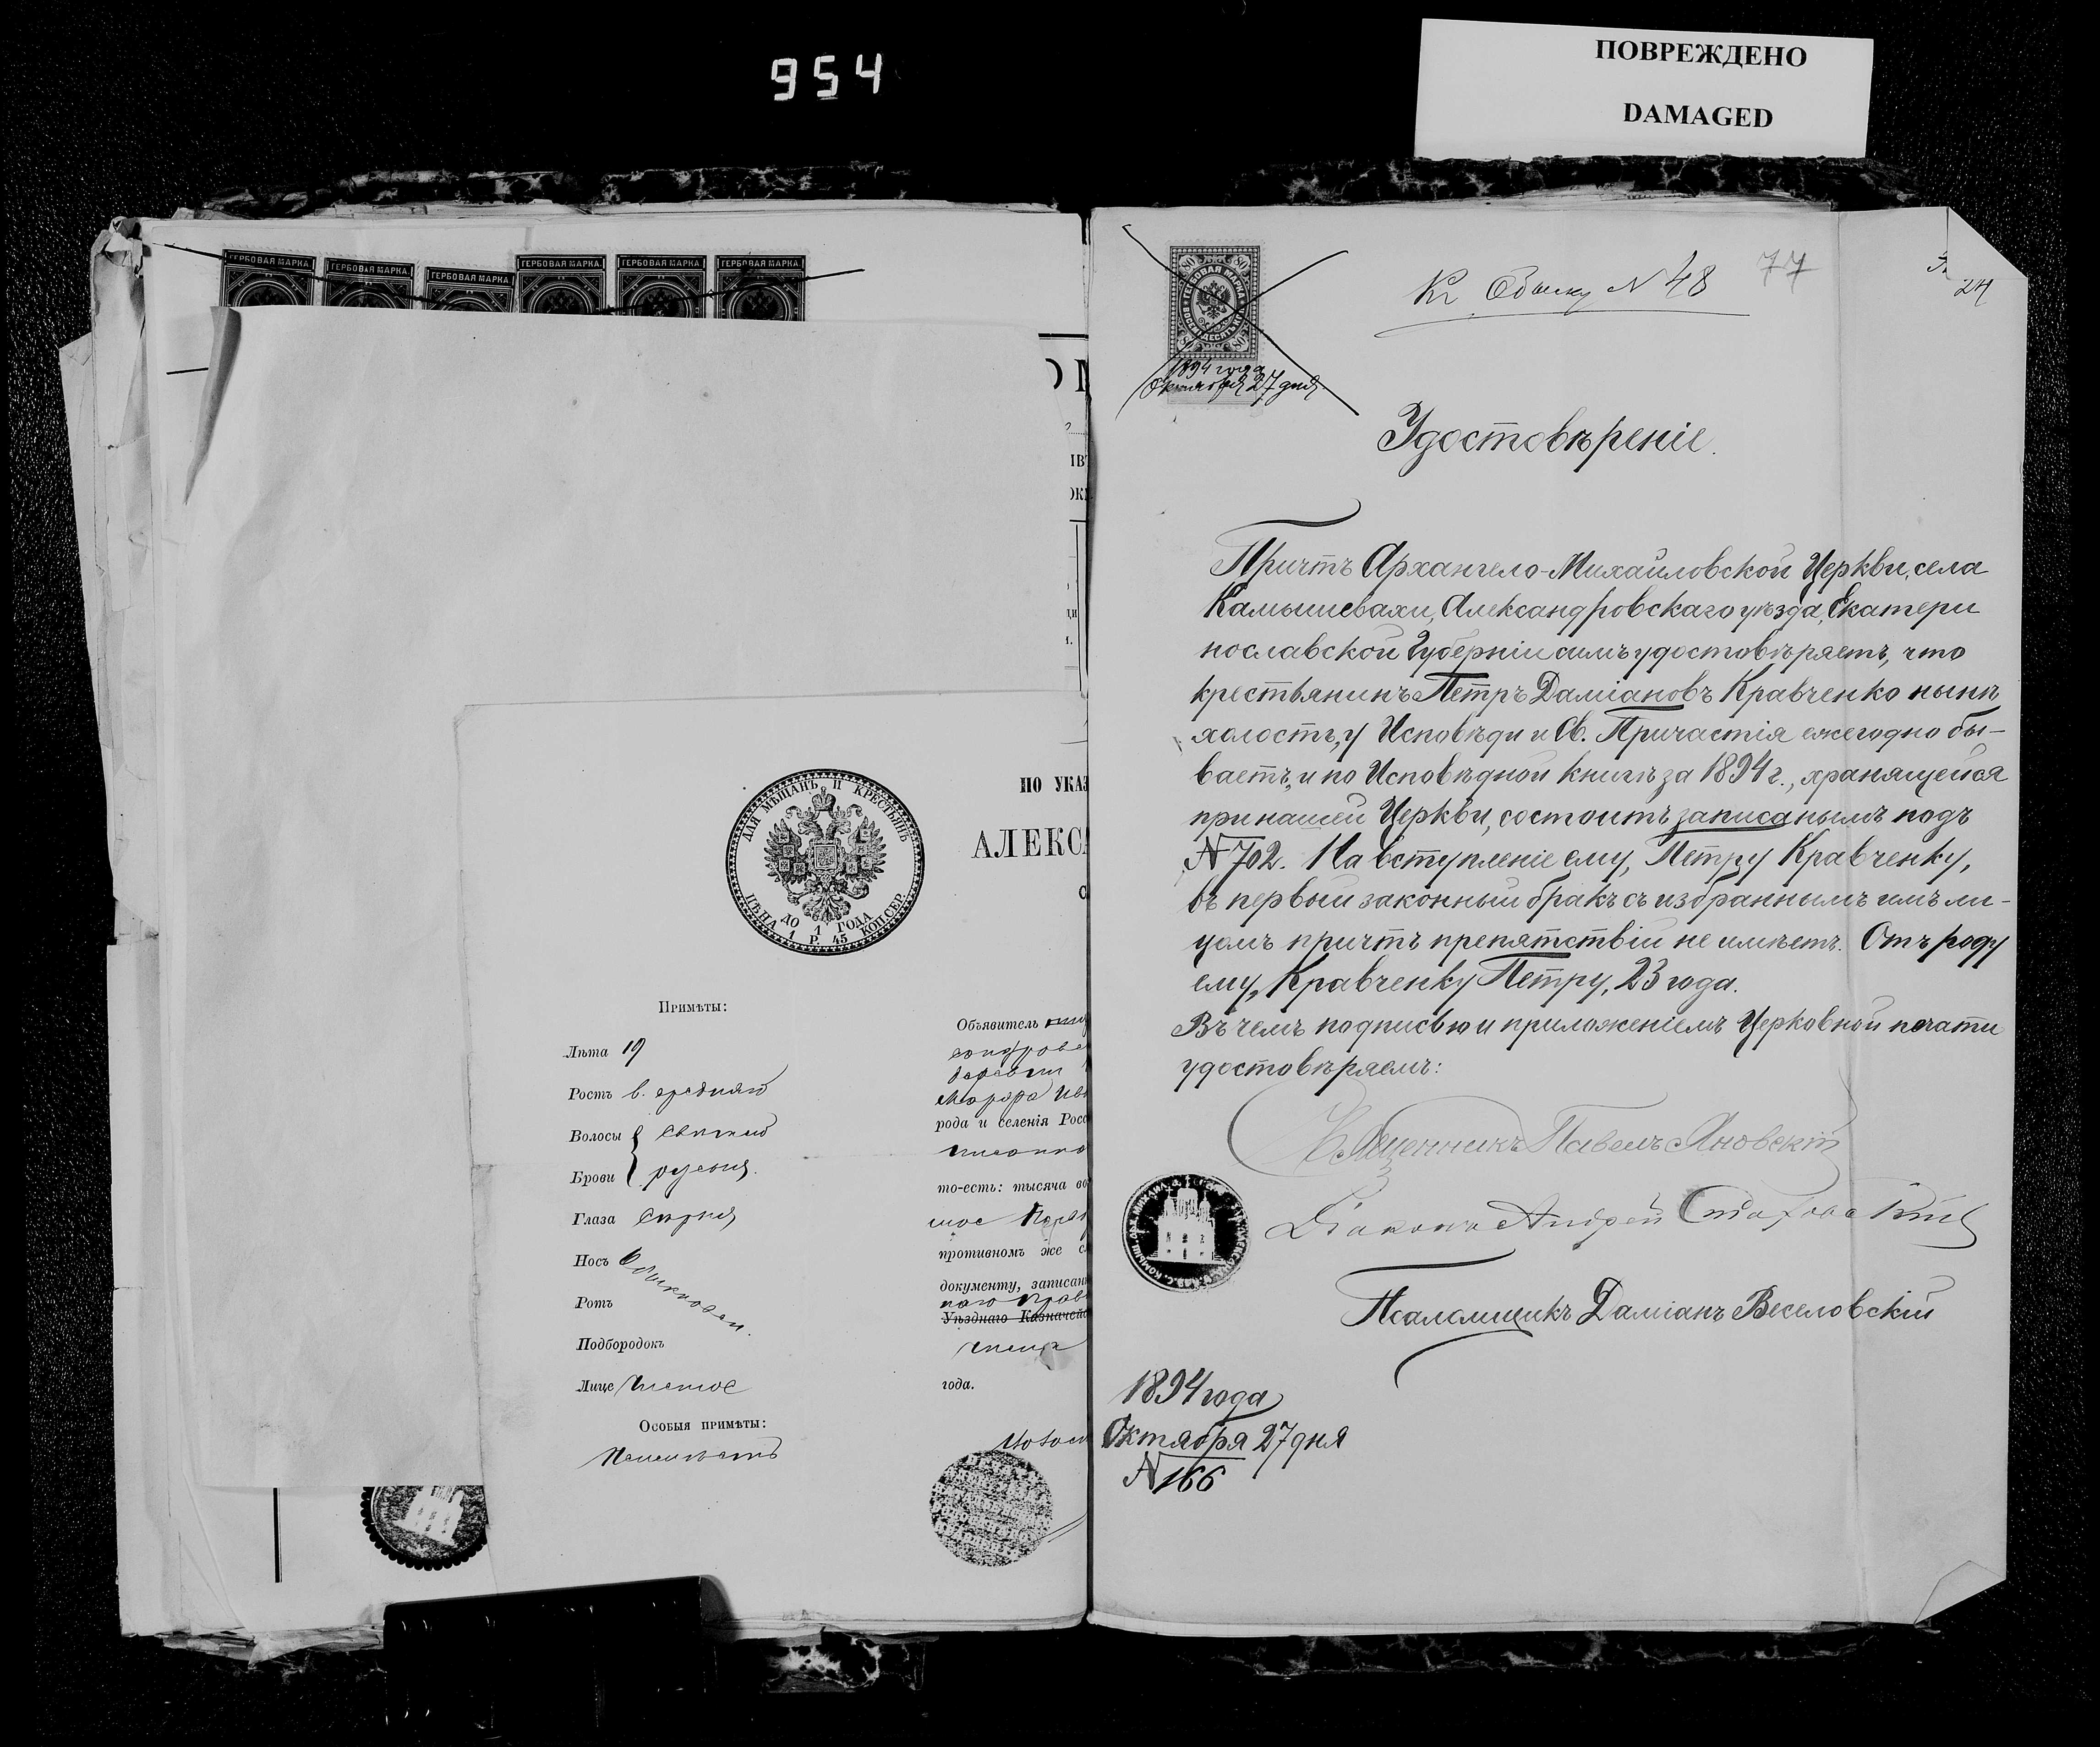 954
ПОВРЕЖДЕНО
DAMAGED
ГЕРБОВАЯ МАРКА.
ГЕРБОВАЯ МАРКА.
ГЕРБОВАЯ МАРКА
ГЕРБОВАЯ МАРКА.
ГЕРБОВАЯ МАРКА.
ГЕРБОВАЯ МАРКА.
ДЛЯ МѢЩАНЪ И КРЕСТЬЯНЪ
ЦѢНА 1 Р. 45 КОП. СЕР.
ДО 1 ГОДА
ПО УКАЗ
АЛЕКС
Примѣты:
Лѣта 19
Ростъ в. средняго
Волосы свѣтло
Брови русыя.
Глаза сѣрые
Носъ Обыкновен.
Ротъ
Подбородокъ
Лице чистое
Особыя примѣты:
Неимѣетъ
Объявитель
рода и селенія Росс
то-есть: тысяча во
противномъ же с
документу, записан
Уѣзднаго Казначейс
года.
80 80
ГЕРБОВАЯ МАРКА
1894 года
Октября 27 дня
Къ Обыску N 48
77
24
Удостовѣреніе.
Причтъ Архангело-Михайловской Церкви, села
Камышевахи, Александровскаго уѣзда, Екатери
нославской Губерніи симъ удостовѣряетъ, что
крестьянинъ Петръ Даміановъ Кравченко нынѣ
холостъ, у Исповѣди и Св. Причастія ежегодно бы-
ваетъ, и по Исповѣдной книгѣ за 1894 г., хранящейся
при нашей Церкви, состоитъ записанымъ подъ
N 702. На вступленіе ему, Петру Кравченку,
въ первый законный бракъ съ избраннымъ имъ ли-
цомъ причтъ препятствій не имѣетъ. Отъ роду
ему, Кравченку Петру, 23 года.
Въ чемъ подписью и приложеніемъ Церковной печати
удостовѣряемъ:
Священникъ Павелъ Яновскій
Діаконъ Андрей
Псаломщикъ Даміанъ Веселовскій
1894 года
Октября 27 дня
N 166